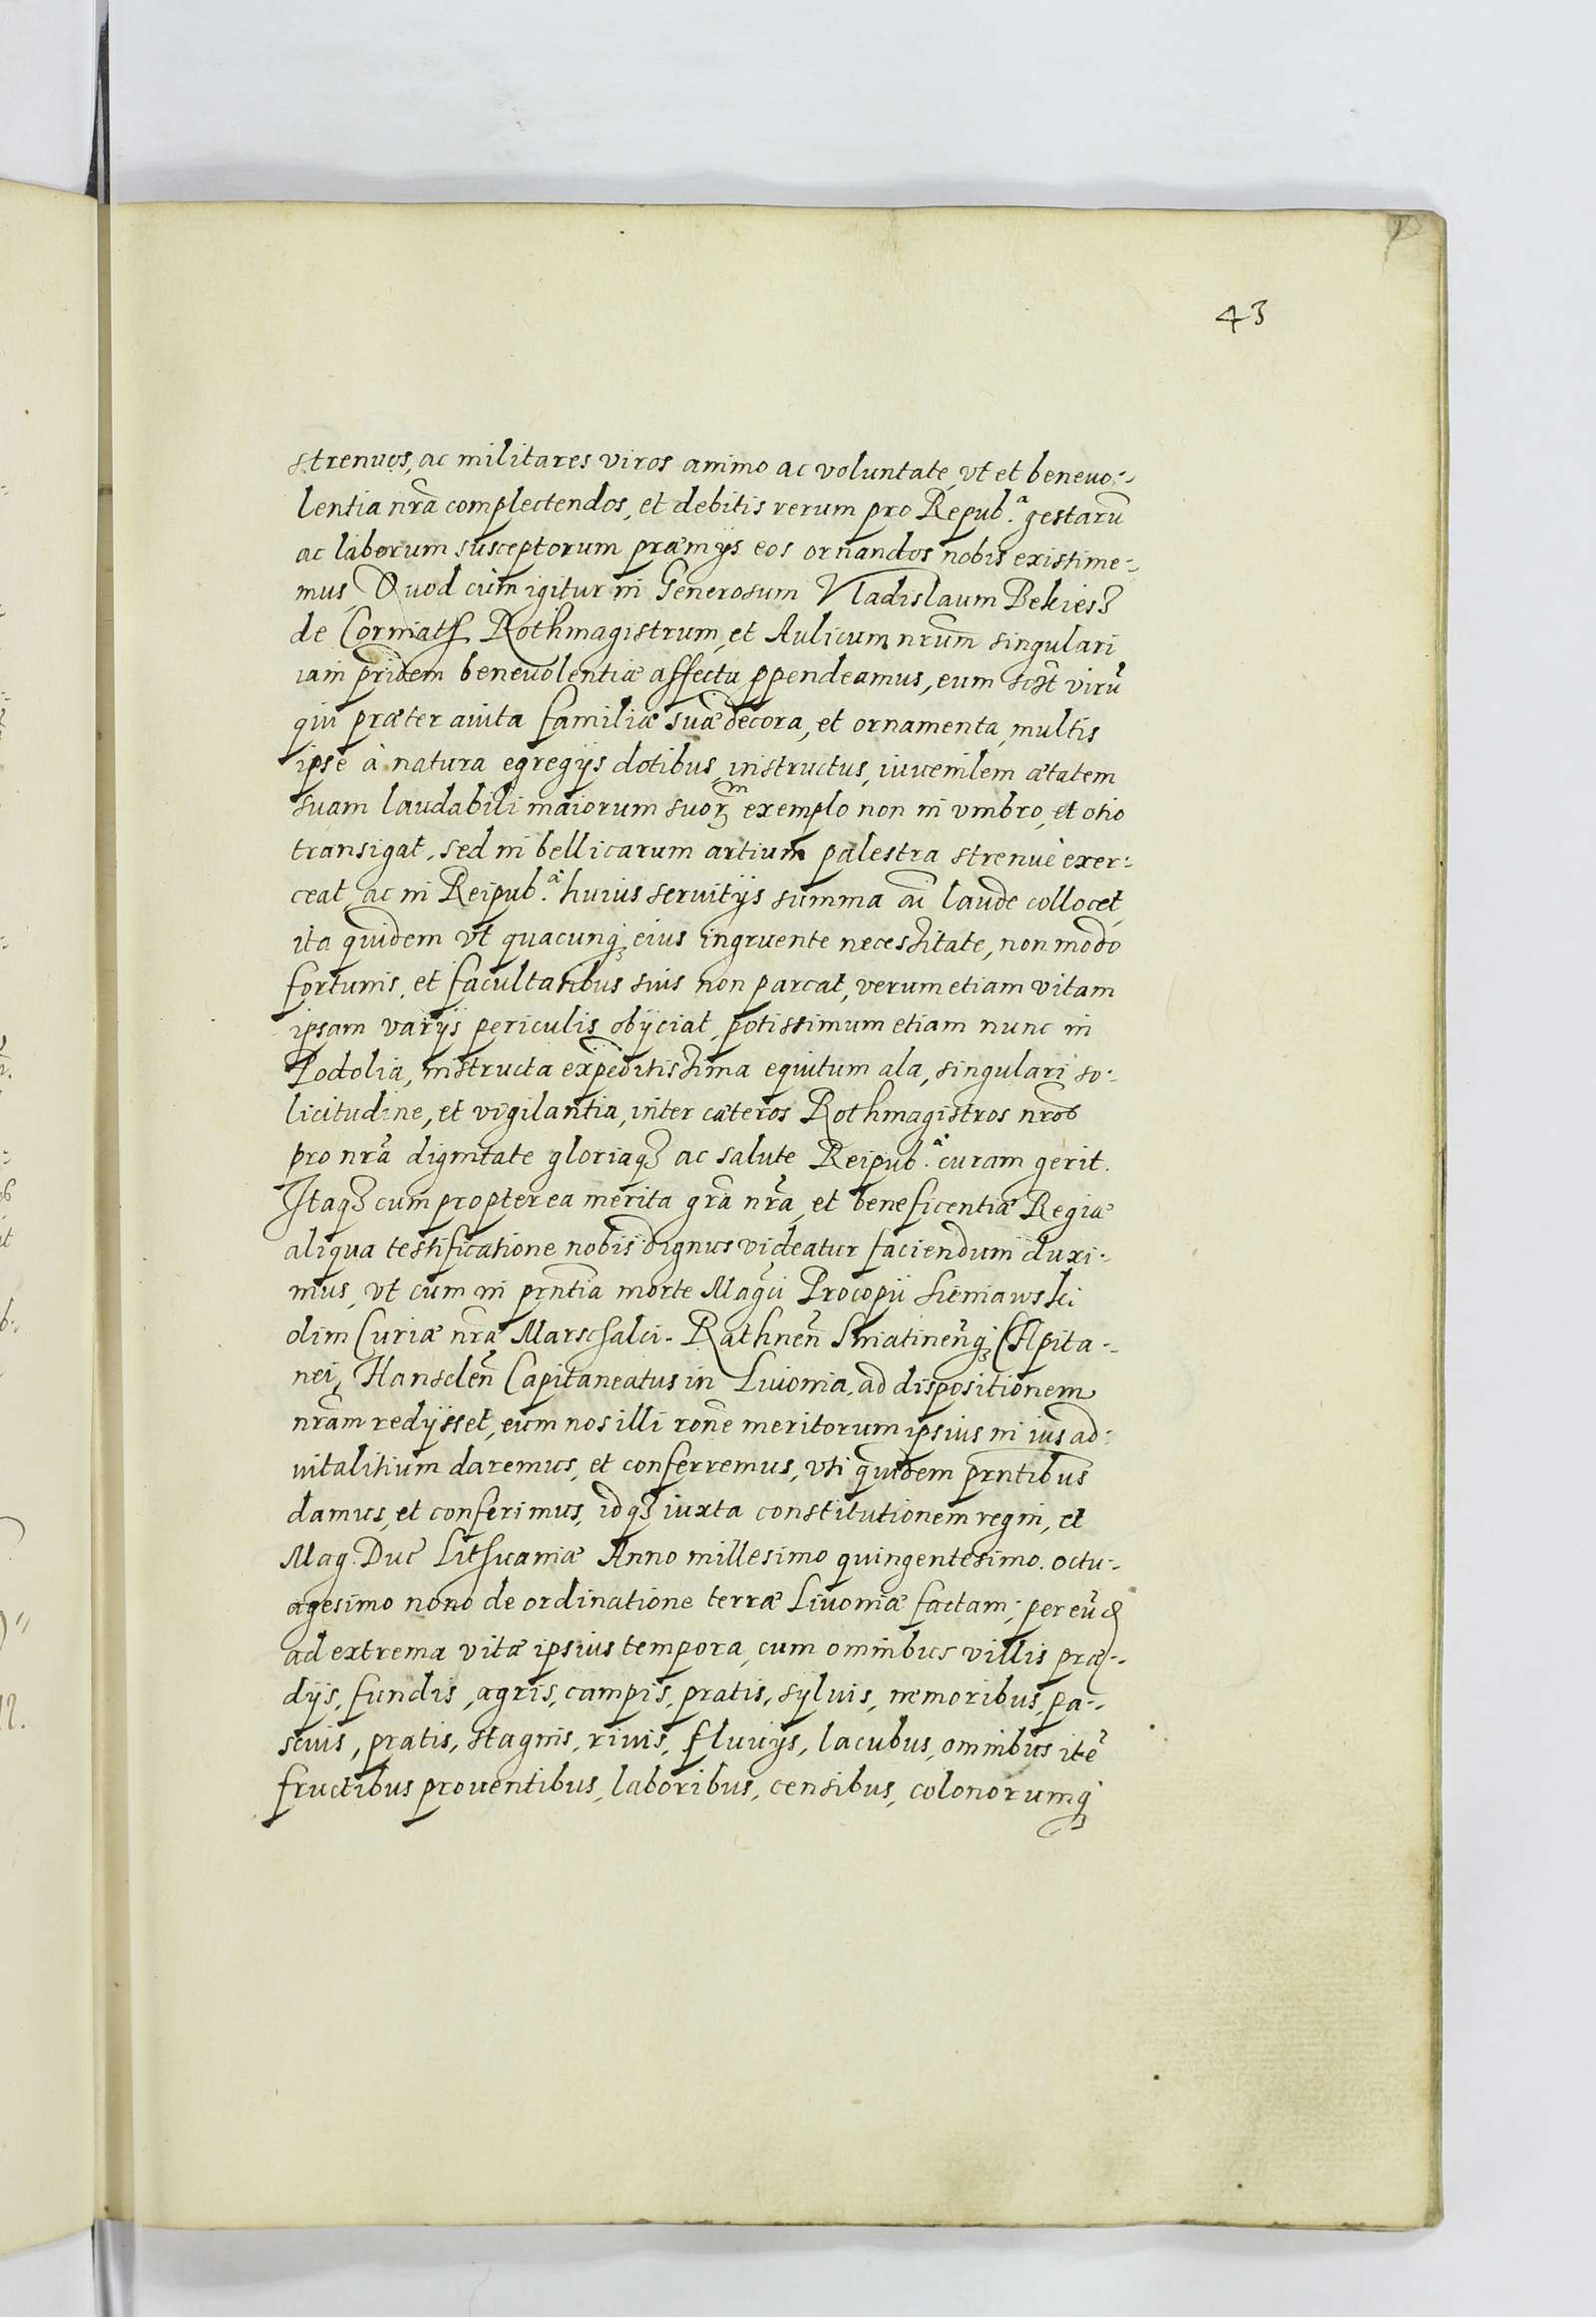 43
strenuos, ac militares viros animo ac voluntate, vt et beneuo-
lentia nrã complectendos, et debitis rerum pro Repub.ᵃ gestarũ
ac laborum susceptorum præmijs eos ornandos nobis existime-
mus, Quod cùm igitur in Generosum Vladislaum Bekiesz
de Corniath Rothmagistrum, et Aulicum nrũm singulari
iam pridem beneuolentiæ affectu ppendeamus, eum virũ
qui præter auita familiæ suæ decora, et ornamenta, multis
ipse à natura egregijs dotibus, instructus, iuuenilem ætatem
suam laudabili maiorum suorm exemplo non in vmbro, et otio
transigat, sed in bellicarum artium palestra strenuè exer-
ceat, ac in Reipub.ᵃ huius seruitijs summa laude collocet,
ita quidem vt quacunq; eius ingruente necessitate, non modo
fortunis, et facultatibus suis non parcat, verum etiam vitam
ipsam varijs periculis obijciat, potissimum etiam nunc in
Podolia, instructa expeditissima equitum ala, singulari so-
licitudine, et vigilantia, inter cæteros Rothmagistros nrõs
pro nrã dignitate gloriaq; ac salute Reipub.ᵃ curam gerit.
Itaq; cum propterea merita grã nrã, et beneficentiæ Regiæ
aliqua testificatione nobis dignus videatur faciendum duxi-
mus, vt cum in prñtia morte Magci Procopii Sieniawski
olim Curiæ nrã Marschalci. Rathneñ Sniatineñq; Capita-
nei, Hanscleñ Capitaneatus in Liuonia, ad dispositionem
nrãm redijsset, eum nos illi rõne meritorum ipsius in ius ad-
uitalitium daremus, et conferremus, vti quidem prñtibus
damus, et conferimus, idq; iuxta constitutionem regni, et
Mag. Duc Lithuaniæ Anno millesimo quingentesimo. octu-
agesimo nono de ordinatione terræ Liuoniæ factam; per eũd
ad extrema vitæ ipsius tempora, cum omnibus villis præ-
dijs, fundis, agris, campis, pratis, syluis, nemoribus, pa-
scuis, pratis, stagnis, riuis, fluuijs, lacubus, omnibus itẽ
fructibus prouentibus, laboribus, censibus, colonorumq;